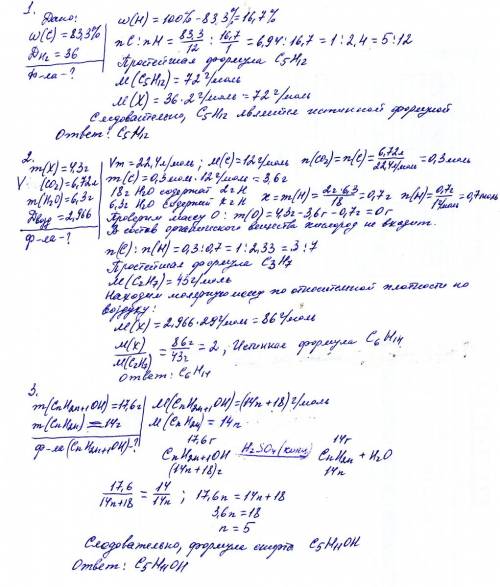 1.
Дано:
w(C) = 83,3%
D H2 = 36
Ф-ла - ?
w(H) = 100% - 83,3% = 16,7%
nC : nH = 83,3/12 : 16,7/1 = 6,94 : 16,7 = 1 : 2,4 = 5 : 12
Простейшая формула C5H12
M(C5H12) = 72 г/моль
M(X) = 36·2 г/моль = 72 г/моль
Следовательно, C5H12 является истинной формулой
Ответ: C5H12
2.
m(X) = 4,3г
V(CO2) = 6,72л
m(H2O) = 6,3г
Dвозд = 2,966
ф-ла - ?
Vm = 22,4 л/моль ; M(C) = 12 г/моль n(CO2) = n(C) = 6,72л / 22,4 л/моль = 0,3 моль
m(C) = 0,3 моль · 12 г/моль = 3,6г
18г H2O содержат 2г H
6,3г H2O содержат x г H x = m(H) = 2г·6,3 / 18 = 0,7г n(H) = 0,7г / 1 г/моль = 0,7 моль
Проверим массу O : m(O) = 4,3г - 3,6г - 0,7г = 0г
В состав органического вещества кислород не входит.
n(C) : n(H) = 0,3 : 0,7 = 1 : 2,33 = 3 : 7
Простейшая формула C3H7
M(C3H7) = 43 г/моль
Находим молярную массу по относительной плотности по
воздуху:
M(X) = 2,966·29 г/моль = 86 г/моль
M(X) / M(C3H7) = 86г / 43г = 2 ; Истинная формула C6H14
Ответ: C6H14
3.
m(CnH2n+1OH) = 17,6г
m(CnH2n) = 14г
ф-ла (CnH2n+1OH) - ?
M(CnH2n+1OH) = (14n+18) г/моль
M(CnH2n) = 14n
17,6г 14г
CnH2n+1OH H2SO4 (конц) → CnH2n + H2O
(14n+18)г 14n
17,6 / 14n+18 = 14 / 14n ; 17,6n = 14n+18
3,6n = 18
n = 5
Следовательно, формула спирта C5H11OH
Ответ: C5H11OH